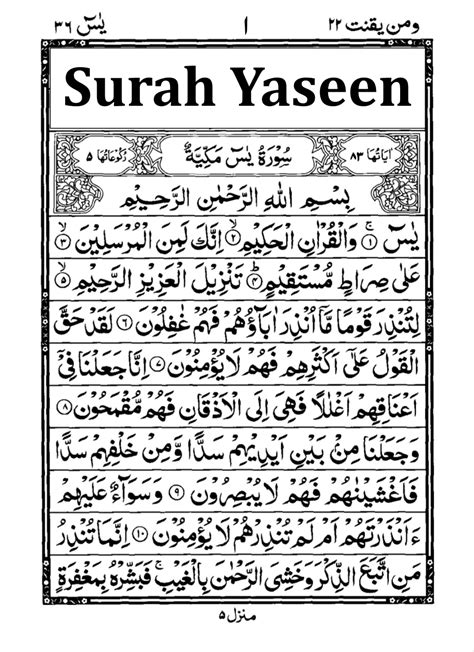 ومن يقنت ۲۲ ا يٰسٓ ۳۶
Surah Yaseen
اٰيَاتُهَا ۸۳ سُوْرَةُ يٰسٓ مَكِّيَّةٌ رُكُوْعَاتُهَا ۵
بِسْمِ اللّٰهِ الرَّحْمٰنِ الرَّحِيْمِ
يٰسٓ ۚ ۱ وَالْقُرْاٰنِ الْحَكِيْمِ ۙ ۲ اِنَّكَ لَمِنَ الْمُرْسَلِيْنَ ۙ ۳
عَلٰى صِرَاطٍ مُّسْتَقِيْمٍ ؕ ۴ تَنْزِيْلَ الْعَزِيْزِ الرَّحِيْمِ ۙ ۵
لِتُنْذِرَ قَوْمًا مَّاۤ اُنْذِرَ اٰبَآؤُهُمْ فَهُمْ غٰفِلُوْنَ ۶ لَقَدْ حَقَّ
الْقَوْلُ عَلٰٓى اَكْثَرِهِمْ فَهُمْ لَا يُؤْمِنُوْنَ ۷ اِنَّا جَعَلْنَا فِيْۤ
اَعْنَاقِهِمْ اَغْلٰلًا فَهِيَ اِلَى الْاَذْقَانِ فَهُمْ مُّقْمَحُوْنَ ۸
وَجَعَلْنَا مِنْۢ بَيْنِ اَيْدِيْهِمْ سَدًّا وَّمِنْ خَلْفِهِمْ سَدًّا
فَاَغْشَيْنٰهُمْ فَهُمْ لَا يُبْصِرُوْنَ ۹ وَسَوَآءٌ عَلَيْهِمْ
ءَاَنْذَرْتَهُمْ اَمْ لَمْ تُنْذِرْهُمْ لَا يُؤْمِنُوْنَ ۱۰ اِنَّمَا تُنْذِرُ
مَنِ اتَّبَعَ الذِّكْرَ وَخَشِيَ الرَّحْمٰنَ بِالْغَيْبِ ۚ فَبَشِّرْهُ بِمَغْفِرَةٍ
منزل ۵